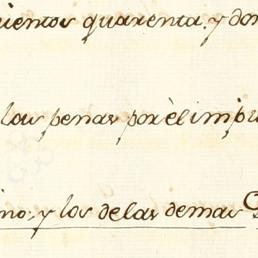 uientos quarenta. y do
las penas por èl impu
ino, y los de las demas